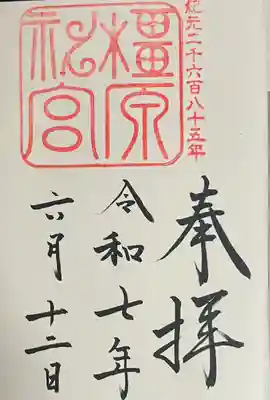 紀元二千六百八十五年
橿原
神宮
奉拝
令和七年
六月十二日